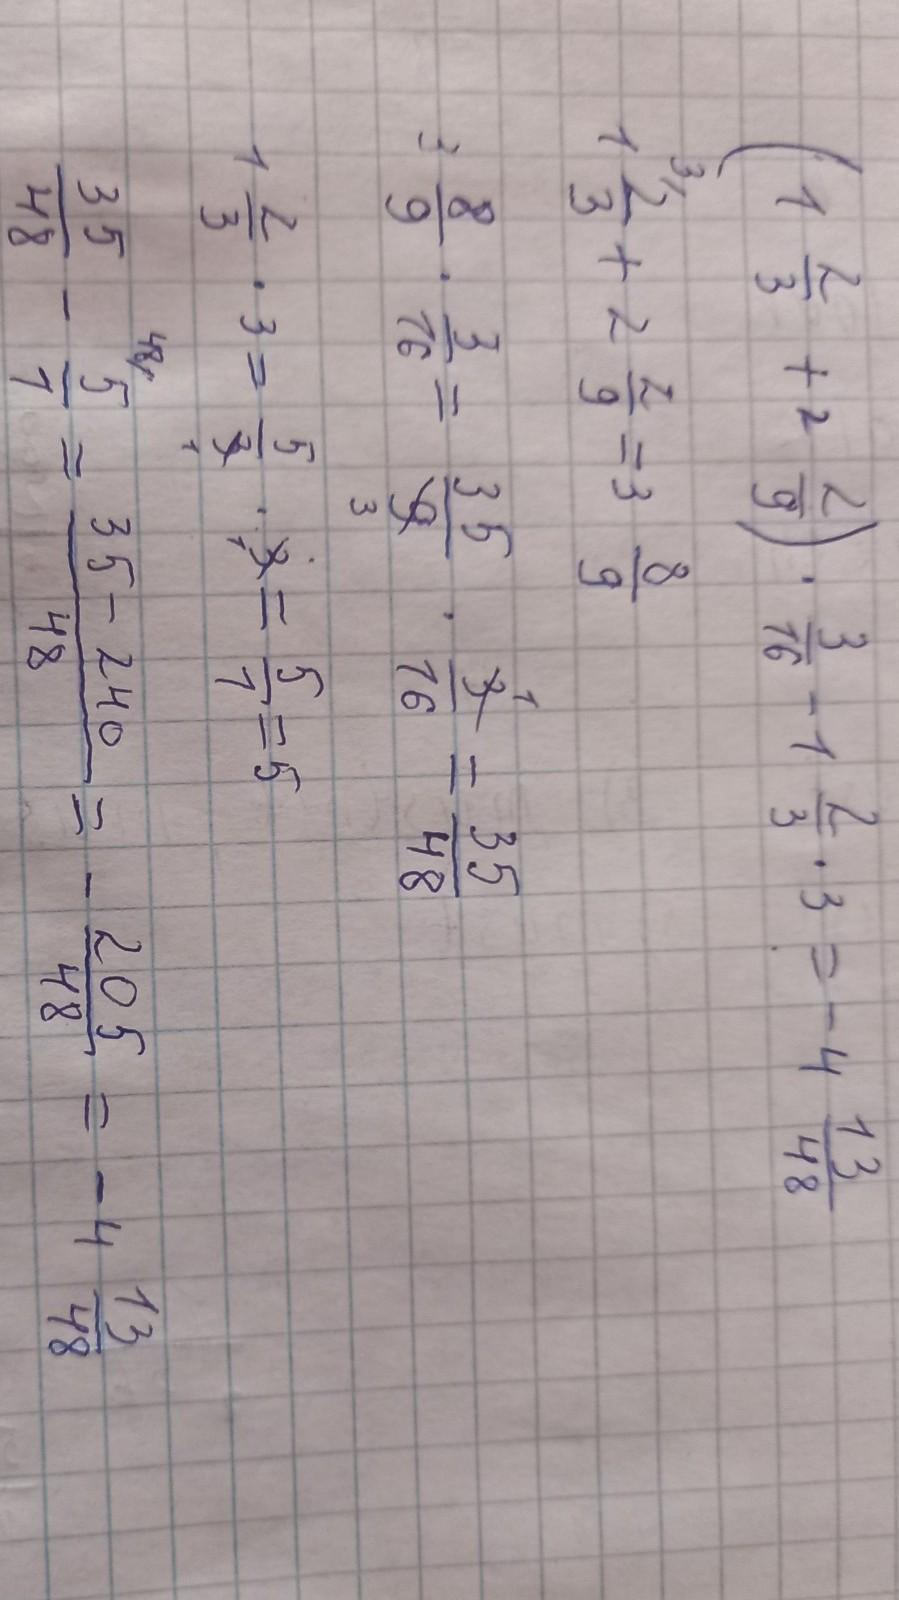 (1 2/3 + 2 2/9) · 3/16 - 1 2/3 · 3 = -4 13/48
1 2/3 + 2 2/9 = 3 8/9
3 8/9 · 3/16 = 35/9 · 3/16 = 35/48
1 2/3 · 3 = 5/3 · 3 = 5/1 = 5
35/48 - 5/1 = 35-240/48 = - 205/48 = -4 13/48